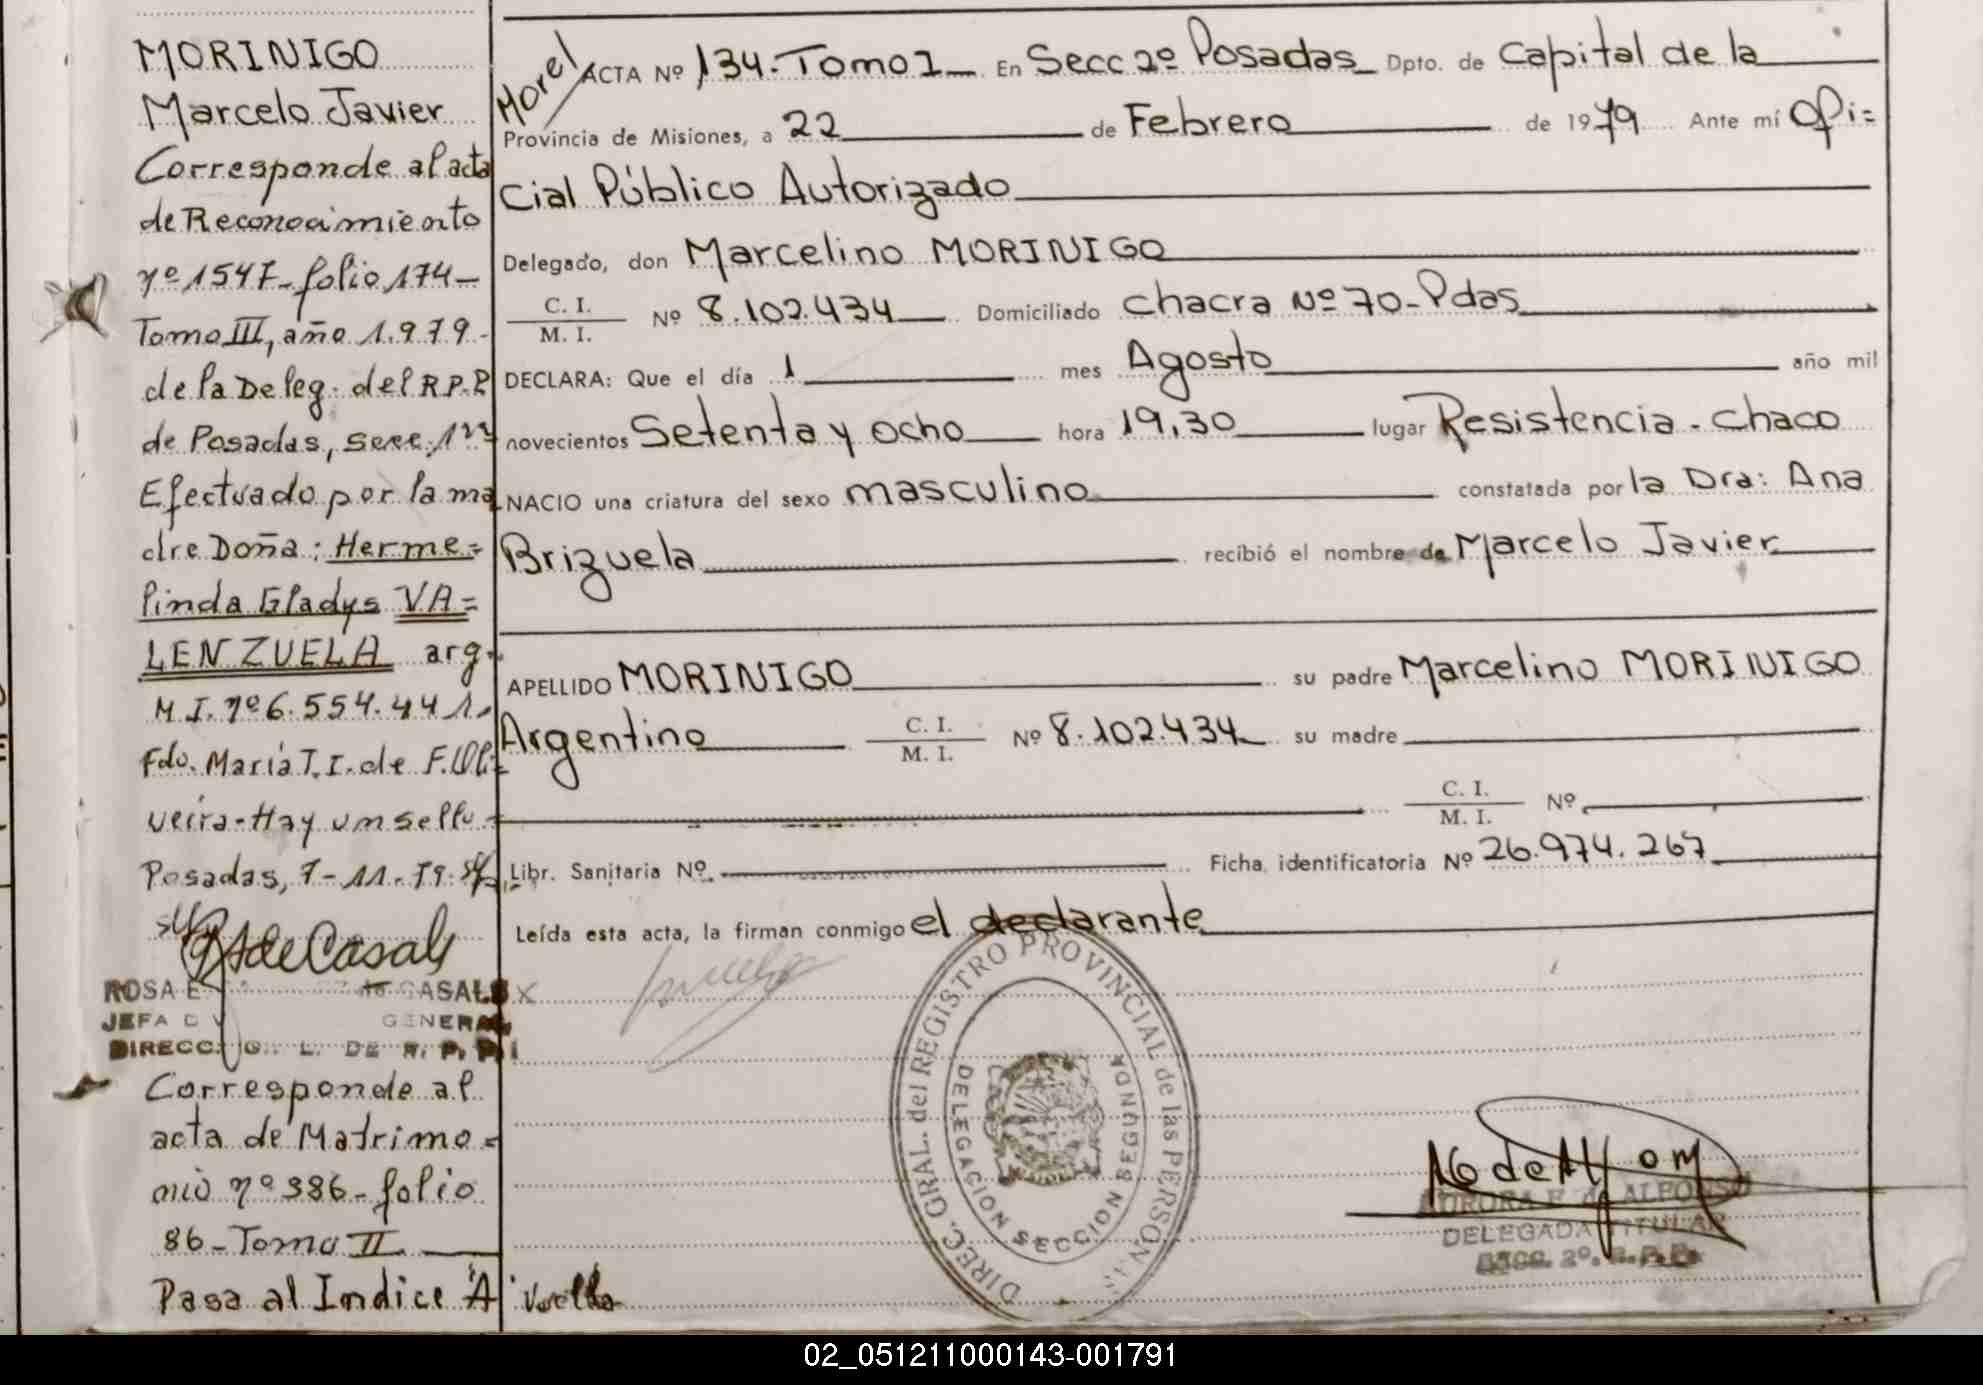 MORINIGO
Marcelo Javier
Corresponde al acta
de Reconocimiento
nº 1547- folio 174-
Tomo III, año 1.979-
de la Deleg. del R.P.P
de Posadas, secc. 1ra
Efectuado por la ma
dre Doña: Herme=
linda Gladys VA=
LENZUELA arg.
M.I. nº 6.554.441.
Fdo. María T. I. de F. Oli=
veira- Hay un sello-
Posadas, 7-11-79.
ROSA E DE CASALS
JEFA GENERAL
DIRECC. DE R. P. P.
Corresponde al
acta de Matrimo=
nio nº 386- folio
86- Tomo II
Pasa al Indice "A" Vuelta
Morel
ACTA Nº 134. Tomo 1 En Secc 2º Posadas Dpto. de Capital de la
Provincia de Misiones, a 22 de Febrero de 1979 Ante mí Ofi=
cial Público Autorizado
Delegado, don Marcelino MORINIGO
C. I.
M. I.
Nº 8.102.434 Domiciliado Chacra Nº 70- Pdas
DECLARA: Que el día 1 mes Agosto año mil
novecientos Setenta y ocho hora 19,30 lugar Resistencia - Chaco
NACIO una criatura del sexo masculino constatada por la Dra: Ana
Brizuela recibió el nombre de Marcelo Javier
APELLIDO MORINIGO su padre Marcelino MORINIGO
Argentino C. I.
M. I.
Nº 8.102.434 su madre
C. I.
M. I.
Nº
Libr. Sanitaria Nº Ficha identificatoria Nº 26.974.267
Leída esta acta, la firman conmigo el declarante
DIREC. GRAL. del REGISTRO PROVINCIAL de las PERSONAS
DELEGACION SECCION SEGUNDA
AURORA E. de ALFONSO
DELEGADA TITULAR
SECC. 2º. R.P.P.
02_051211000143-001791